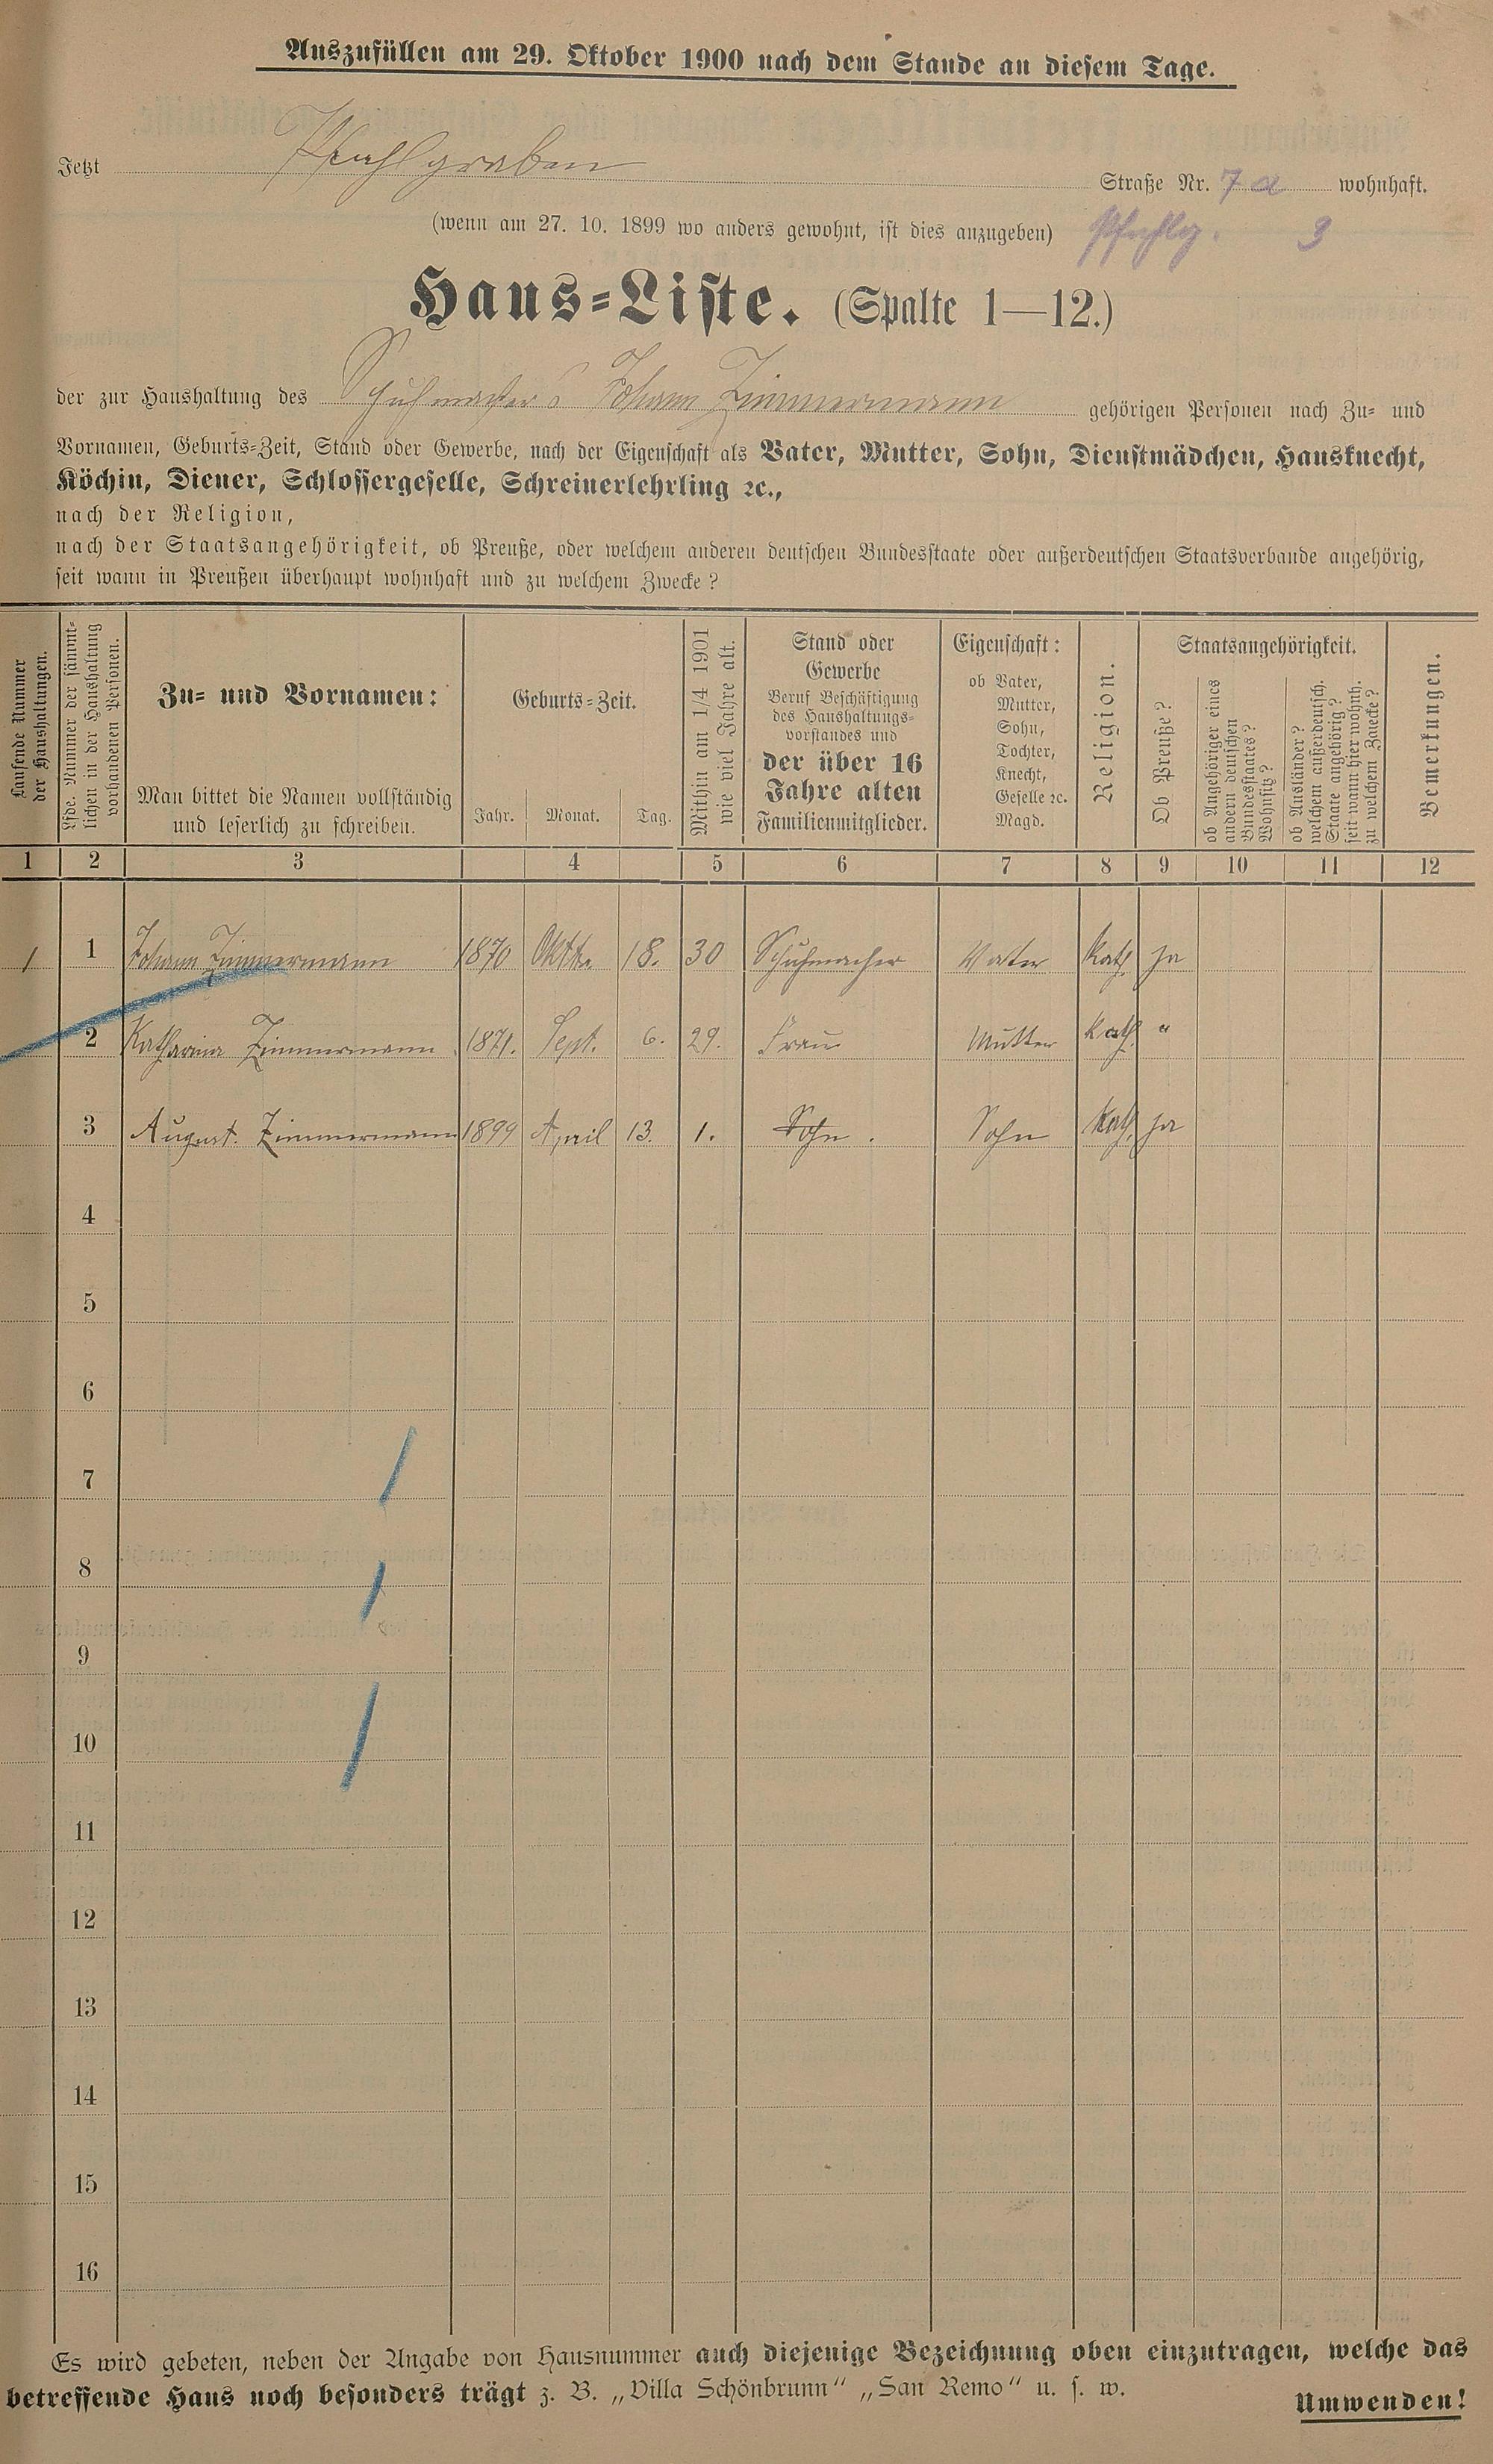 Auszufüllen am 29. Oktober 1900 nach dem Stande an diesem Tage.
Jetzt Pfahlgraben Straße Nr. 7 a wohnhaft.
(wenn am 27. 10. 1899 wo anders gewohnt, ist dies anzugeben) Pfahlg. 3
Haus-Liste. (Spalte 1—12.)
der zur Haushaltung des Schuhmachers Johann Zimmermann gehörigen Personen nach Zu- und
Vornamen, Geburts-Zeit, Stand oder Gewerbe, nach der Eigenschaft als Vater, Mutter, Sohn, Dienstmädchen, Hausknecht,
Köchin, Diener, Schlossergeselle, Schreinerlehrling ꝛc.,
nach der Religion,
nach der Staatsangehörigkeit, ob Preuße, oder welchem anderen deutschen Bundesstaate oder außerdeutschen Staatsverbande angehörig,
seit wann in Preußen überhaupt wohnhaft und zu welchem Zwecke?
Laufende Nummer
der Haushaltungen.
Lfde. Nummer der sämmt-
lichen in der Haushaltung
vorhandenen Personen.
Zu- und Vornamen:
Man bittet die Namen vollständig
und leserlich zu schreiben.
Geburts-Zeit.
Jahr. Monat. Tag.
Mithin am 1/4 1901
wie viel Jahre alt.
Stand oder
Gewerbe
Beruf Beschäftigung
des Haushaltungs-
vorstandes und
der über 16
Jahre alten
Familienmitglieder.
Eigenschaft:
ob Vater,
Mutter,
Sohn,
Tochter,
Knecht,
Geselle ꝛc.
Magd.
Religion.
Staatsangehörigkeit.
Ob Preuße?
ob Angehöriger eines
andern deutschen
Bundesstaates?
Wohnsitz?
ob Ausländer?
welchem außerdeutsch.
Staate angehörig?
seit wann hier wohnh.
zu welchem Zwecke?
Bemerkungen.
1 2 3 4 5 6 7 8 9 10 11 12
1 1 Johann Zimmermann 1870 Oktb. 18. 30 Schuhmacher Vater Kath. ja
2 Katharina Zimmermann 1871. Sept. 6. 29. Frau Mutter Kath. "
3 August Zimmermann 1899 April 13. 1. Sohn. Sohn Kath. ja
4
5
6
7
8
9
10
11
12
13
14
15
16
Es wird gebeten, neben der Angabe von Hausnummer auch diejenige Bezeichnung oben einzutragen, welche das
betreffende Haus noch besonders trägt z. B. „Villa Schönbrunn“ „San Remo“ u. s. w.
Umwenden!